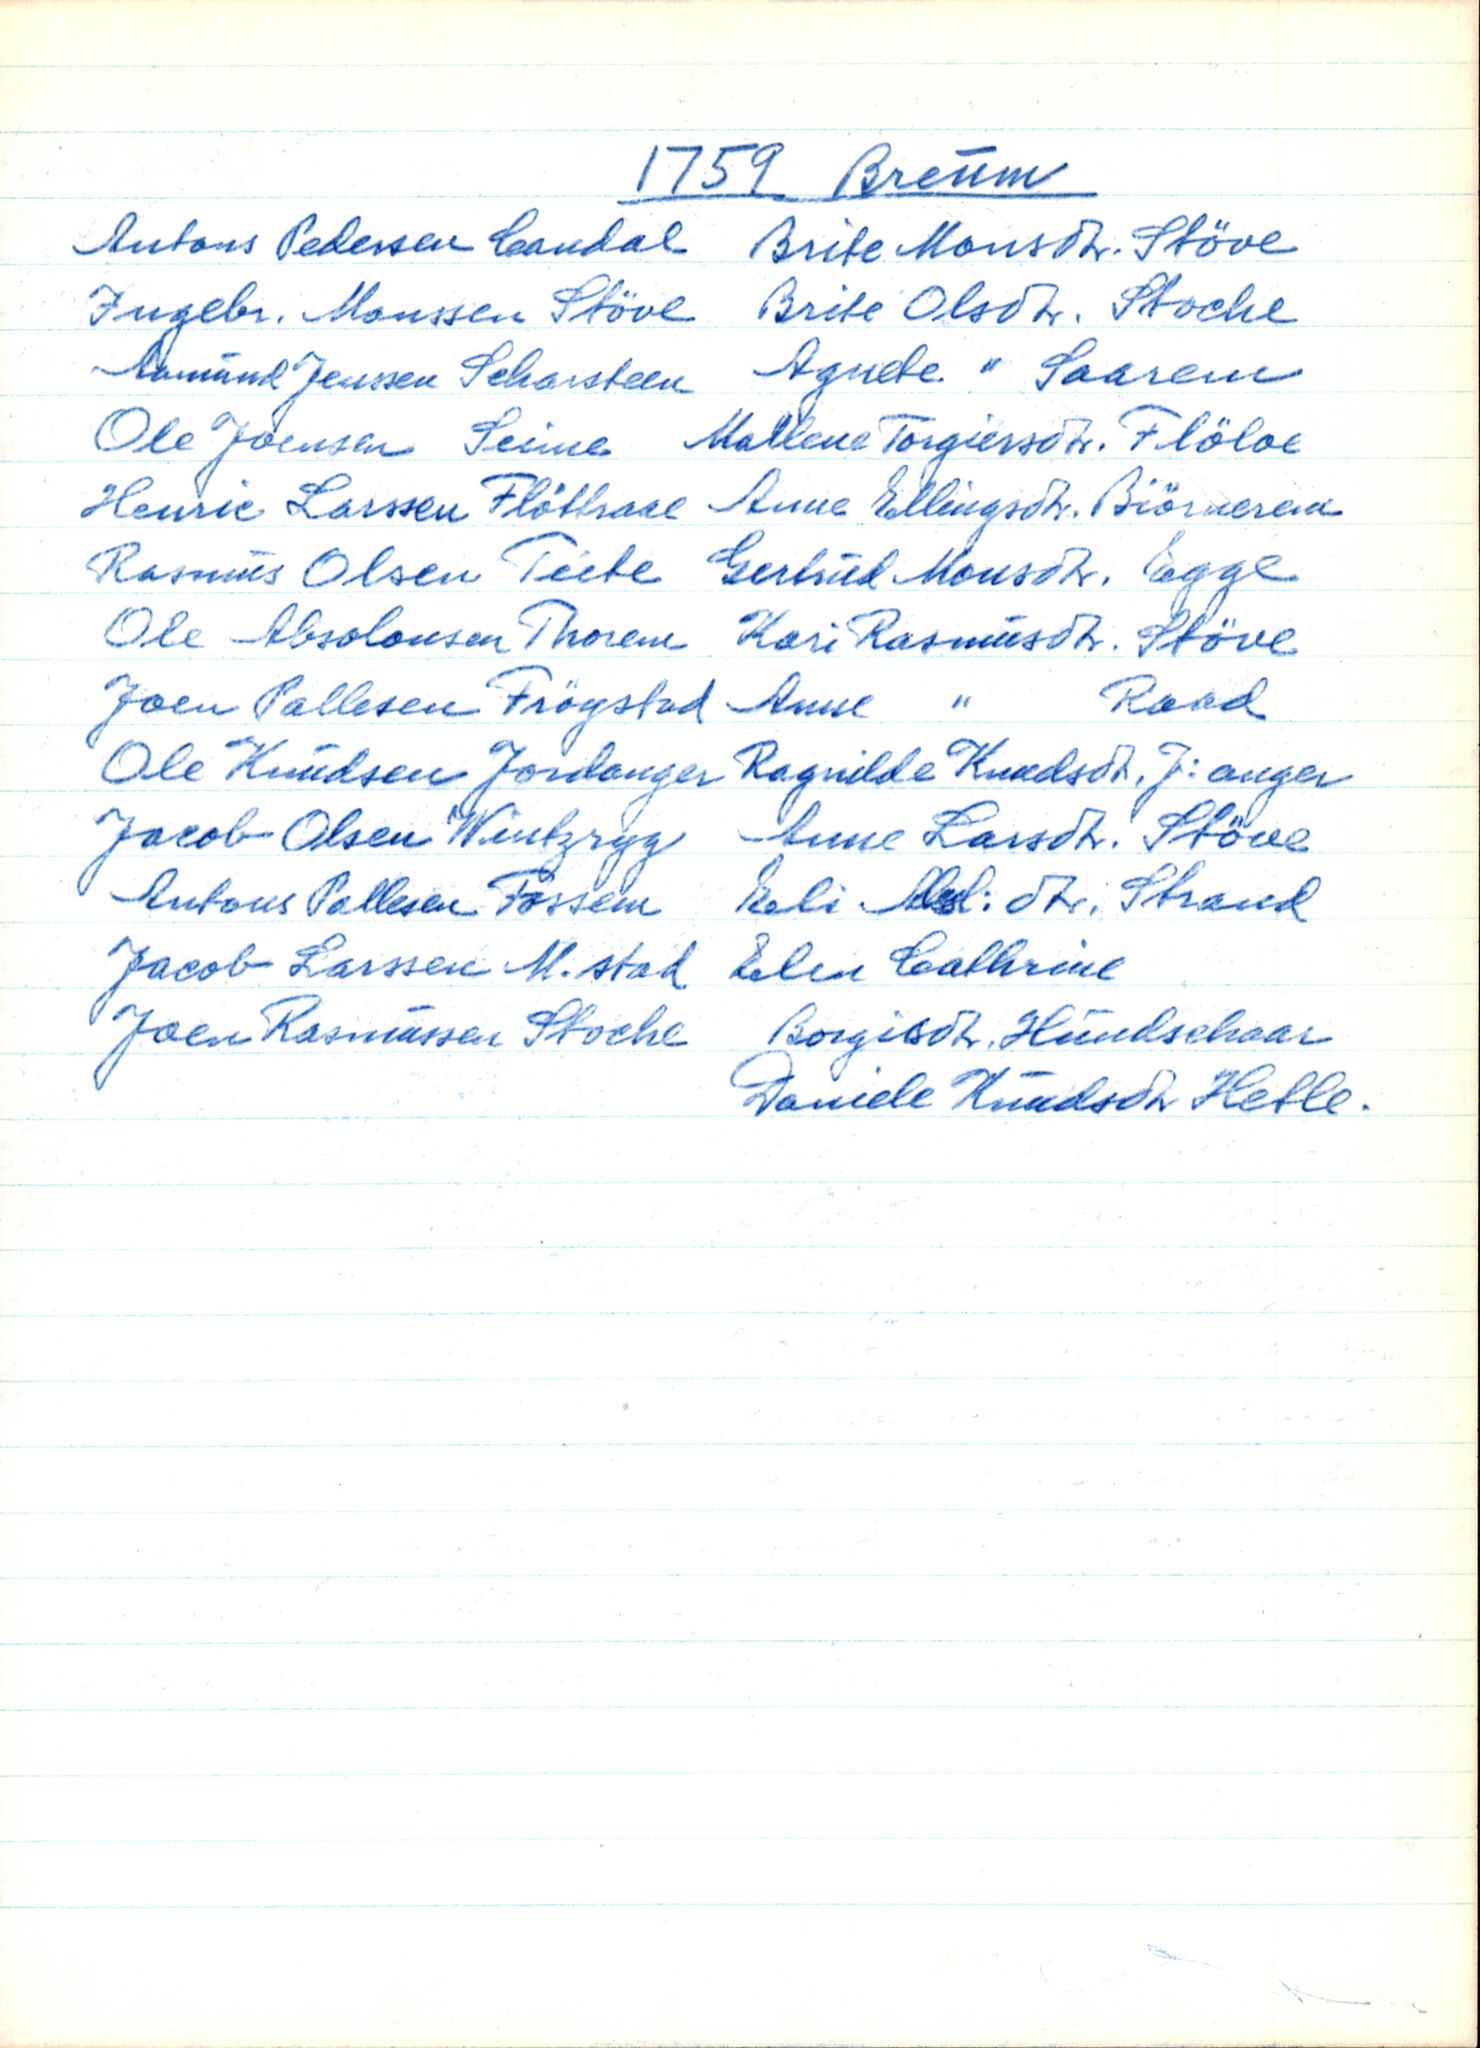 1759 Breüm
Antons Pedersen Candal Brite Monsdtr. Stöve
Ingebr. Monssen Stöve Brite Olsdtr. Stoche
Aamünd Jenssen Scharsteen Agnete " Saarem
Ole Joensen Seime Mallene Torgiersdtr. Flöloe
Henric Larssen Flöthraae Anne Ellingsdtr. Biörnerem
Rasmüs Olsen Teite Gertrüd Monsdtr. Egge
Ole Absolonsen Thorem Kari Rasmüsdtr. Stöve
Joen Pallesen Fröystad Anne " Raad
Ole Knüdsen Jordanger Ragnilde Knudsdtr. J:anger
Jacob Olsen Wintzryg Anne Larsdtr. Stöve
Antons Pallesen Fossem Eli dtr. Strand
Jacob Larssen M.stad Elen Cathrine
Joen Rasmüssen Stoche Borgisdtr. Hündschaar
Daniele Knüdsdtr Hetle.